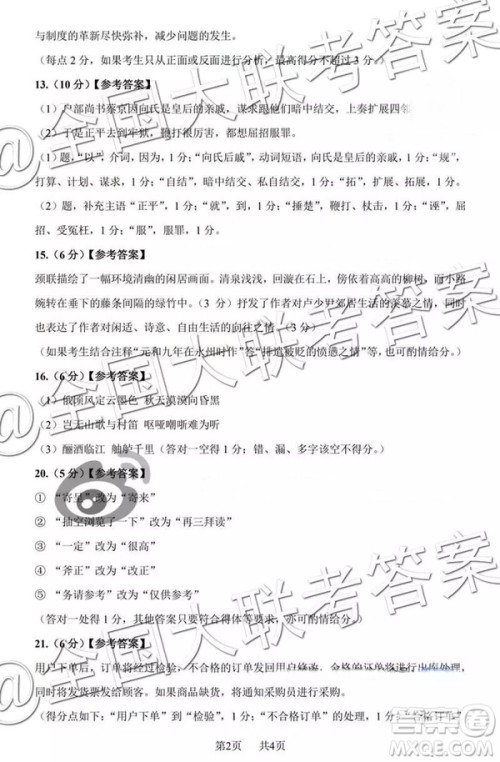 与制度的革新尽快弥补，减少问题的发生。
（每点 2 分，如果考生只从正面或反面分析，最高得分不超过 3 分）
13.（10 分）【参考答案】
（1）户部尚书蔡京因向氏是皇后的亲戚，谋求与他们暗中结交，上奏扩展四邻
（2）于是正平去到牢狱，鞭打很厉害，都想屈招服罪。
（1）题，“以”，介词，因为，1 分；“向氏后戚”，动词短语，向氏是皇后的亲戚，1 分；“规”，
打算、计划、谋求，1 分；“自结”，暗中结交、私自结交，1 分；“拓”，扩展、开拓，1 分。
（2）题，补充主语“正平”，1 分；“就”，到，1 分；“捶楚”，鞭打、杖击，1 分；“诬”，屈
招、受冤枉，1 分；“服”，服罪，1 分。
15.（6 分）【参考答案】
颈联描绘了一幅环境清幽的闲居画面。清泉浅浅，漩洄在石上，傍依着高高的柳树，而小路
婉转在垂下的藤条间隔的绿竹中。（3 分）抒发了作者对卢少尹郊居生活的羡慕之情，同时
也表达了作者对闲适、诗意、自由生活的向往之情。（3 分）
（如果考生结合注释“元和九年在永州时作”答“排遣被贬的愤懑之情”，也可酌情给分。）
16.（6 分）【参考答案】
（1）俄顷风定云墨色 秋天漠漠向昏黑
（2）岂无山歌与村笛 呕哑嘲哳难为听
（3）酾酒临江 舳舻千里（答对一空得 1 分；错、漏、多字不得分）
20.（5 分）【参考答案】
① “寄呈”改为“寄来”
② “抽空浏览了一下”改为“再三拜读”
③ “一定”改为“很高”
④ “斧正”改为“改正”
⑤ “务请参考”改为“仅供参考”
（答对一处得 1 分，其他答案只要符合得体等要求，也可酌情给分）
21.（6 分）【参考答案】
用户下单后，订单将经过检验，不合格的订单发回用户，合格的订单将进行出库处理，
将发货票发给顾客。如果商品缺货，将通知采购员进行采购。
（得分点如下：“用户下单”到“检验”，1 分；“不合格订单”的处理，1 分；“合格订单”
第2页 共4页
@全国大联考答案
@全国大联考答案
@全国大联考答案
答案圈
MXQE.COM